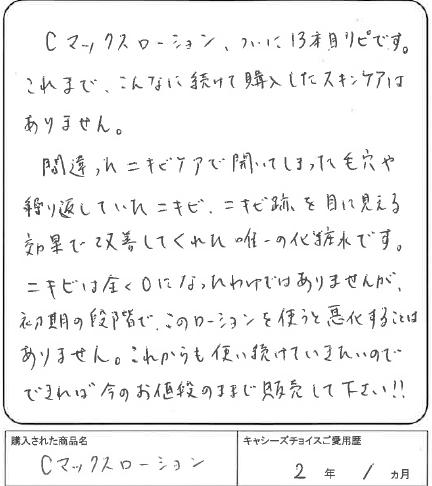 Cマックスローション、ついに13本目リピです。
これまで、こんなに続けて購入したスキンケアは
ありません。
間違ったニキビケアで開いてしまった毛穴や
繰り返していたニキビ、ニキビ跡を目に見える
効果で改善してくれた唯一の化粧水です。
ニキビは全く0になったわけではありませんが、
初期の段階で、このローションを使うと悪化することは
ありません。これからも使い続けていきたいので
できれば今のお値段のままで販売して下さい!!
購入された商品名
キャシーズチョイスご愛用歴
Cマックスローション
2 年 1 ヵ月